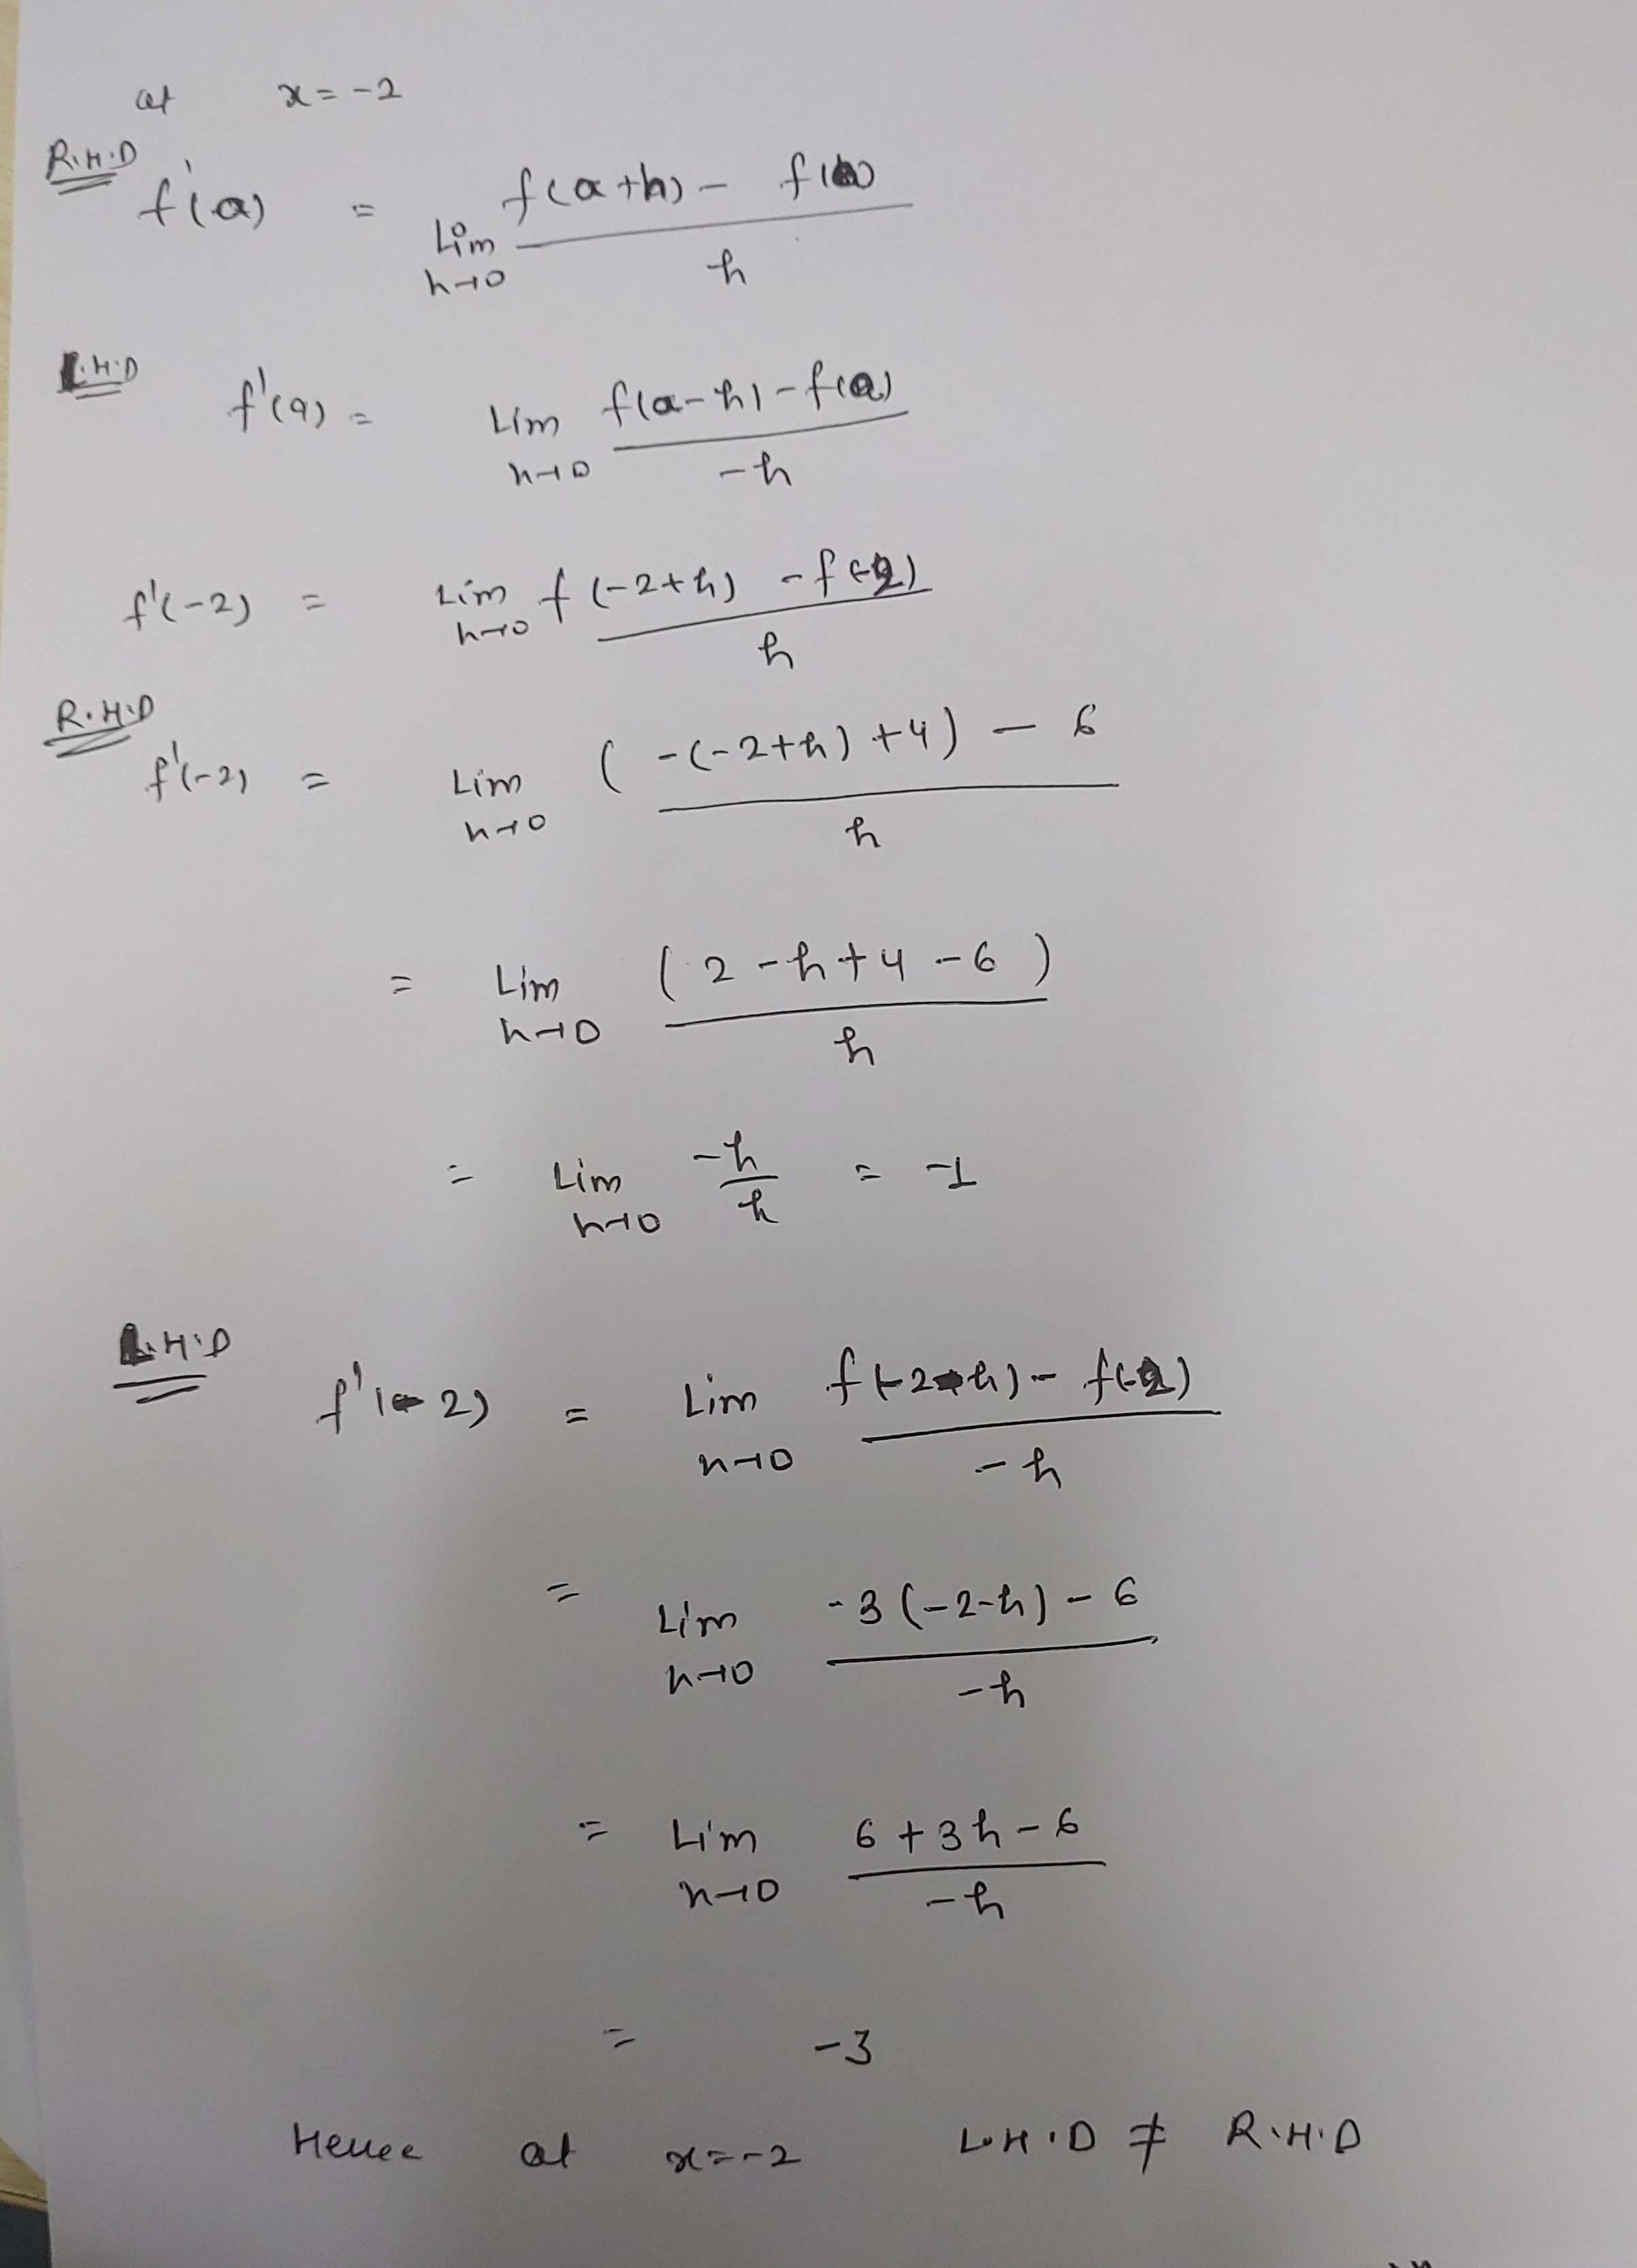 at x = -2
R.H.D
f'(a) = Lim h→0 f(a+h) - f(a) / h
L.H.D
f'(a) = Lim h→0 f(a-h) - f(a) / -h
f'(-2) = Lim h→0 f(-2+h) - f(-2) / h
R.H.D
f'(-2) = Lim h→0 (-(-2+h)+4) - 6 / h
= Lim h→0 (2-h+4-6) / h
= Lim h→0 -h / h = -1
L.H.D
f'(-2) = Lim h→0 f(-2-h) - f(-2) / -h
= Lim h→0 -3(-2-h) - 6 / -h
= Lim h→0 6+3h-6 / -h
= -3
Hence at x=-2 L.H.D ≠ R.H.D